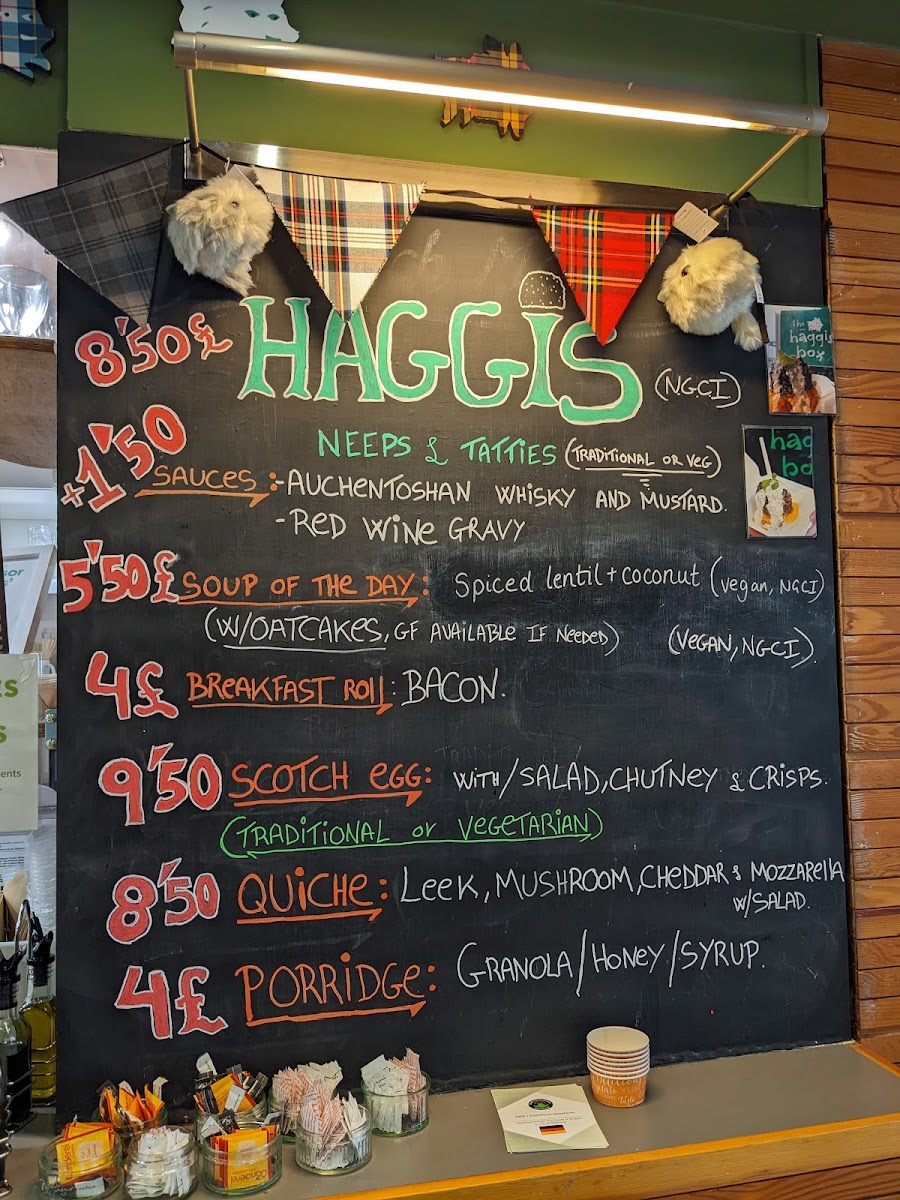 8'50£ HAGGIS (N.G.C.I)
NEEPS & TATTIES (TRADITIONAL OR VEG)
+1'50 SAUCES:- AUCHENTOSHAN WHISKY AND MUSTARD.
- RED WINE GRAVY
5'50£ SOUP OF THE DAY: Spiced lentil + coconut (vegan, NGCI)
(W/OATCAKES, GF AVAILABLE IF NEEDED) (VEGAN, NGCI).
4£ BREAKFAST ROLL: BACON.
9'50 SCOTCH EGG: WITH/SALAD, CHUTNEY & CRISPS.
(TRADITIONAL or VEGETARIAN)
8'50 QUICHE: LEEK, MUSHROOM, CHEDDAR & MOZZARELLA
W/SALAD.
4£ PORRIDGE: GRANOLA/HONEY/SYRUP.
the
haggis
box
hag
bo
ES
S
ents
Canderel
Canderel